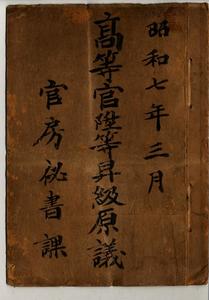 昭和七年三月
高等官陞等昇級原議
官房秘書課